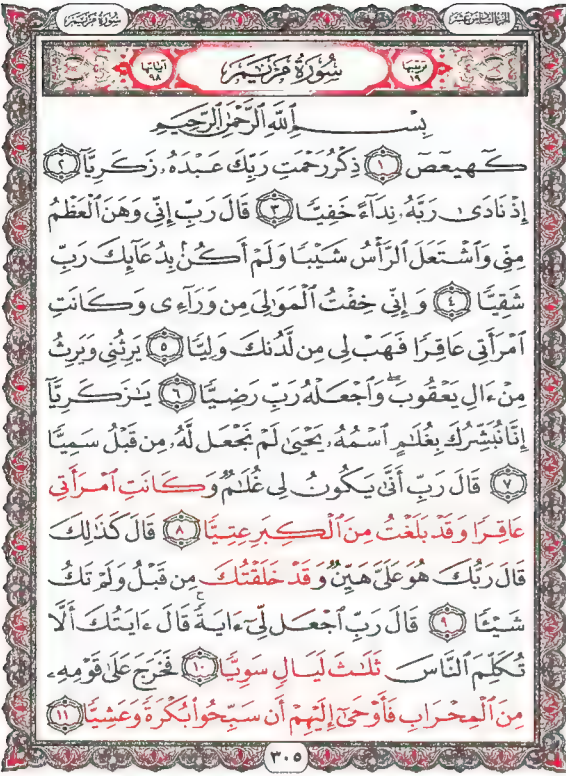 سُورَةُ مَرْيَمَ
الجزء السادس عشر
ترتيبها ١٩
سُورَةُ مَرْيَمَ
آياتها ٩٨
بِسْمِ ٱللَّهِ ٱلرَّحْمَٰنِ ٱلرَّحِيمِ
كٓهيعٓصٓ ١ ذِكْرُ رَحْمَتِ رَبِّكَ عَبْدَهُۥ زَكَرِيَّآ ٢
إِذْ نَادَىٰ رَبَّهُۥ نِدَآءً خَفِيًّا ٣ قَالَ رَبِّ إِنِّى وَهَنَ ٱلْعَظْمُ
مِنِّى وَٱشْتَعَلَ ٱلرَّأْسُ شَيْبًا وَلَمْ أَكُنۢ بِدُعَآئِكَ رَبِّ
شَقِيًّا ٤ وَإِنِّى خِفْتُ ٱلْمَوَٰلِىَ مِن وَرَآءِى وَكَانَتِ
ٱمْرَأَتِى عَاقِرًا فَهَبْ لِى مِن لَّدُنكَ وَلِيًّا ٥ يَرِثُنِى وَيَرِثُ
مِنْ ءَالِ يَعْقُوبَ ۖ وَٱجْعَلْهُ رَبِّ رَضِيًّا ٦ يَٰزَكَرِيَّآ
إِنَّا نُبَشِّرُكَ بِغُلَٰمٍ ٱسْمُهُۥ يَحْيَىٰ لَمْ نَجْعَل لَّهُۥ مِن قَبْلُ سَمِيًّا
٧ قَالَ رَبِّ أَنَّىٰ يَكُونُ لِى غُلَٰمٌ وَكَانَتِ ٱمْرَأَتِى
عَاقِرًا وَقَدْ بَلَغْتُ مِنَ ٱلْكِبَرِ عِتِيًّا ٨ قَالَ كَذَٰلِكَ
قَالَ رَبُّكَ هُوَ عَلَىَّ هَيِّنٌ وَقَدْ خَلَقْتُكَ مِن قَبْلُ وَلَمْ تَكُ
شَيْـًٔا ٩ قَالَ رَبِّ ٱجْعَل لِّىٓ ءَايَةً ۚ قَالَ ءَايَتُكَ أَلَّا
تُكَلِّمَ ٱلنَّاسَ ثَلَٰثَ لَيَالٍ سَوِيًّا ١٠ فَخَرَجَ عَلَىٰ قَوْمِهِۦ
مِنَ ٱلْمِحْرَابِ فَأَوْحَىٰٓ إِلَيْهِمْ أَن سَبِّحُوا۟ بُكْرَةً وَعَشِيًّا ١١
٣٠٥